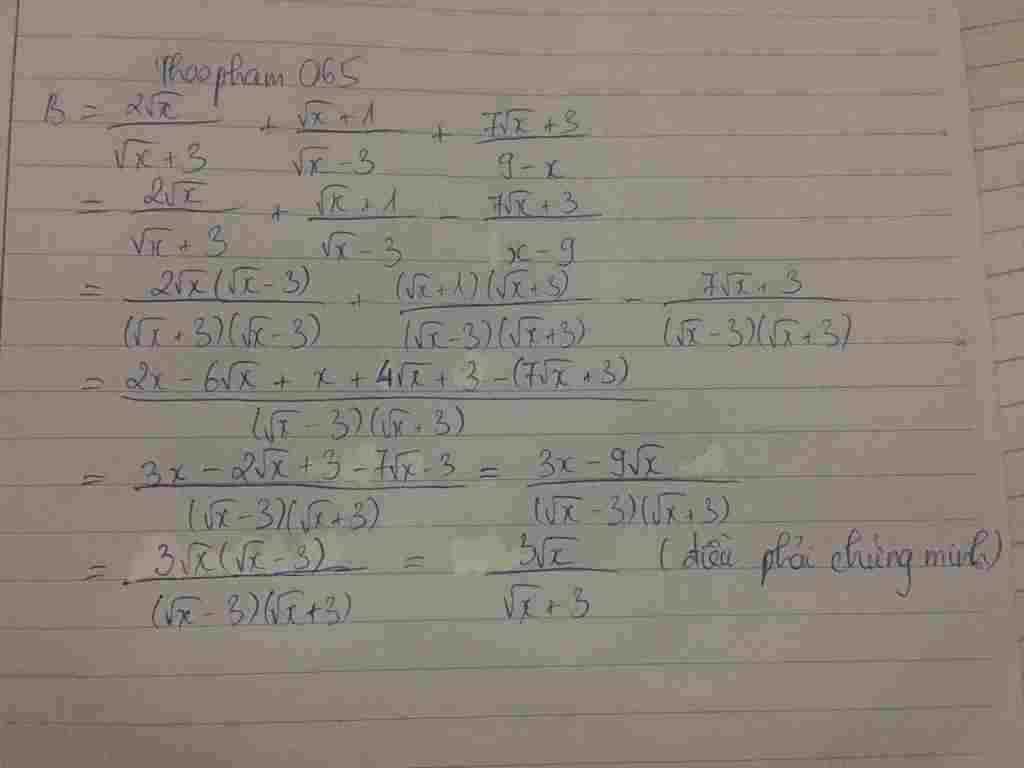 Thaopham 065
B = 2√x / (√x + 3) + (√x + 1) / (√x - 3) + (7√x + 3) / (9 - x)
= 2√x / (√x + 3) + (√x + 1) / (√x - 3) - (7√x + 3) / (x - 9)
= 2√x(√x - 3) / (√x + 3)(√x - 3) + (√x + 1)(√x + 3) / (√x - 3)(√x + 3) - (7√x + 3) / (√x - 3)(√x + 3)
= (2x - 6√x + x + 4√x + 3 - (7√x + 3)) / (√x - 3)(√x + 3)
= (3x - 2√x + 3 - 7√x - 3) / (√x - 3)(√x + 3) = (3x - 9√x) / (√x - 3)(√x + 3)
= 3√x(√x - 3) / (√x - 3)(√x + 3) = 3√x / (√x + 3) (điều phải chứng minh)